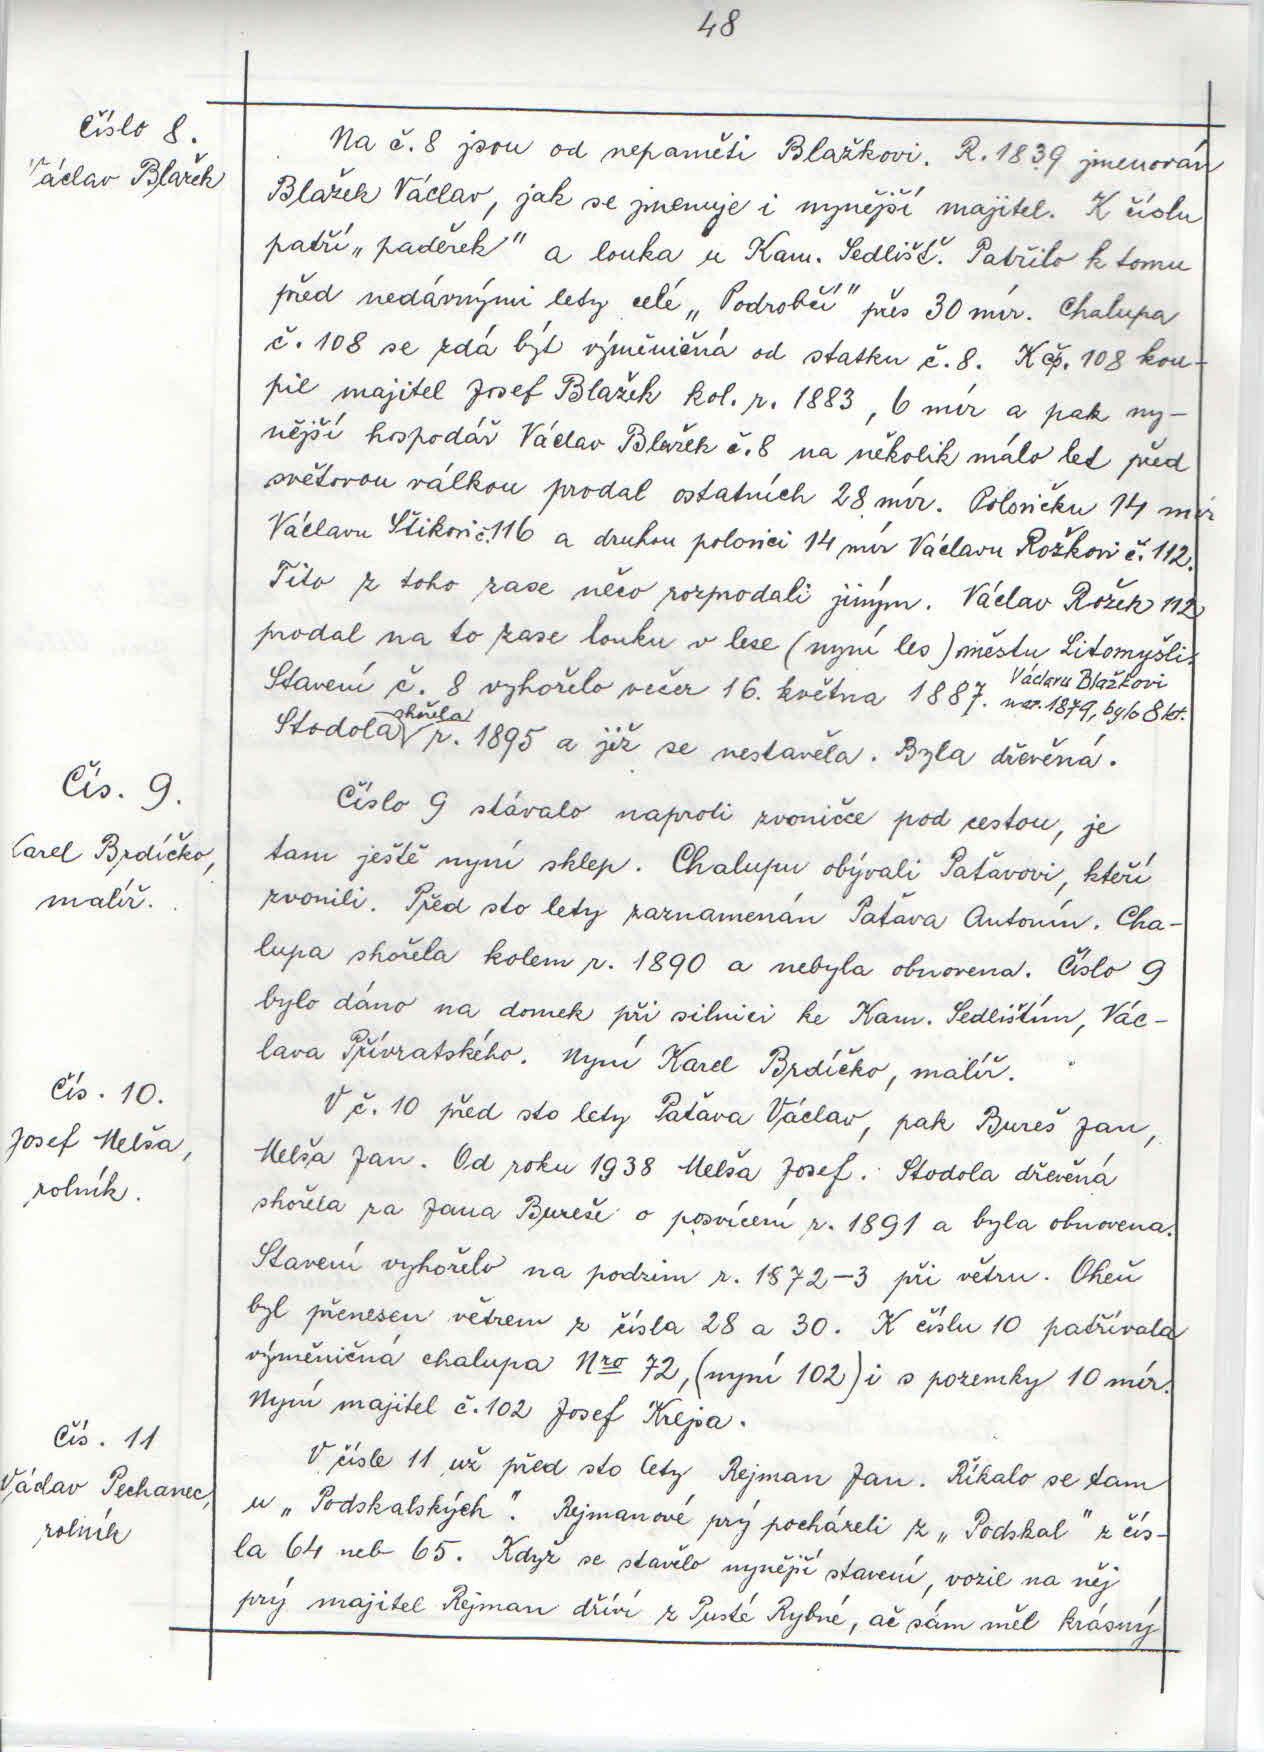 48
Číslo 8.
Václav Blažek
Na č. 8 jsou od nepaměti Blažkovi. R. 1839 jmenován
Blažek Václav, jak se jmenuje i nynější majitel. K číslu
patří „paděrek" a louka u Kam. Sedlišť. Patřilo k tomu
před nedávnými lety celé „Podrobčí" přes 30 mír. Chalupa
č. 108 se zdá být výměničná od statku č. 8. K čp. 108 kou-
pil majitel Josef Blažek kol. r. 1883, 6 mír a pak ny-
nější hospodář Václav Blažek č. 8 na několik málo let před
světovou válkou prodal ostatních 28 mír. Polovičku 14 mír
Václavu Štikovi č. 116 a druhou polovici 14 mír Václavu Rožkovi č. 112.
Tito z toho zase něco rozprodali jiným. Václav Rožek 112
prodal na to zase louku v lese (nyní les) městu Litomyšli.
Stavení č. 8 vyhořelo večer 16. května 1887. Václavu Blažkovi
nar. 1879, bylo 8 let.
Stodola shořela r. 1895 a již se nestavěla. Byla dřevěná.
Čís. 9.
Karel Brdíčko,
malíř.
Číslo 9 stávalo naproti zvoničce pod cestou, je
tam ještě nyní sklep. Chalupu obývali Paťavovi, kteří
zvonili. Před sto lety zaznamenán Paťava Antonín. Cha-
lupa shořela kolem r. 1890 a nebyla obnovena. Číslo 9
bylo dáno na domek při silnici ke Kam. Sedlištím, Vác-
lava Přívratského. Nyní Karel Brdíčko, malíř.
Čís. 10.
Josef Melša,
rolník.
V č. 10 před sto lety Paťava Václav, pak Bureš Jan,
Melša Jan. Od roku 1938 Melša Josef. Stodola dřevěná
shořela za Jana Bureše o posvícení r. 1891 a byla obnovena.
Stavení vyhořelo na podzim r. 1872-3 při větru. Oheň
byl přenesen větrem z čísla 28 a 30. K číslu 10 patřívala
výměničná chalupa Nro 72, (nyní 102) i s pozemky 10 mír.
Nyní majitel č. 102 Josef Krejsa.
Čís. 11
Václav Pechanec,
rolník
V čísle 11 už před sto lety Rejman Jan. Říkalo se tam
u „Podskalských". Rejmanové prý pocházeli z „Podskal" z čís-
la 64 neb 65. Když se stavělo nynější stavení, vozil na něj
prý majitel Rejman dříví z Pusté Rybné, ač sám měl krásný